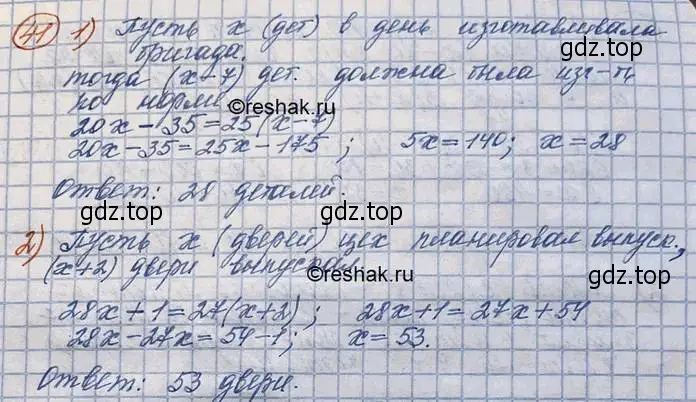 41 1) Пусть x (дет) в день изготавливала
бригада. gdz.top
тогда (x-7) дет. должна была изг-ть
по норме
©reshak.ru
20x - 35 = 25(x-7)
20x - 35 = 25x - 175 ; 5x = 140; x = 28
Ответ: 28 деталей.
gdz.top gdz.top
2) Пусть x (дверей) цех планировал выпуск.,
(x+2) двери выпускал gdz.top
©reshak.ru
28x + 1 = 27(x+2) ; 28x+1 = 27x + 54
28x - 27x = 54 - 1; x = 53.
gdz.top
Ответ: 53 двери.
gdz.top